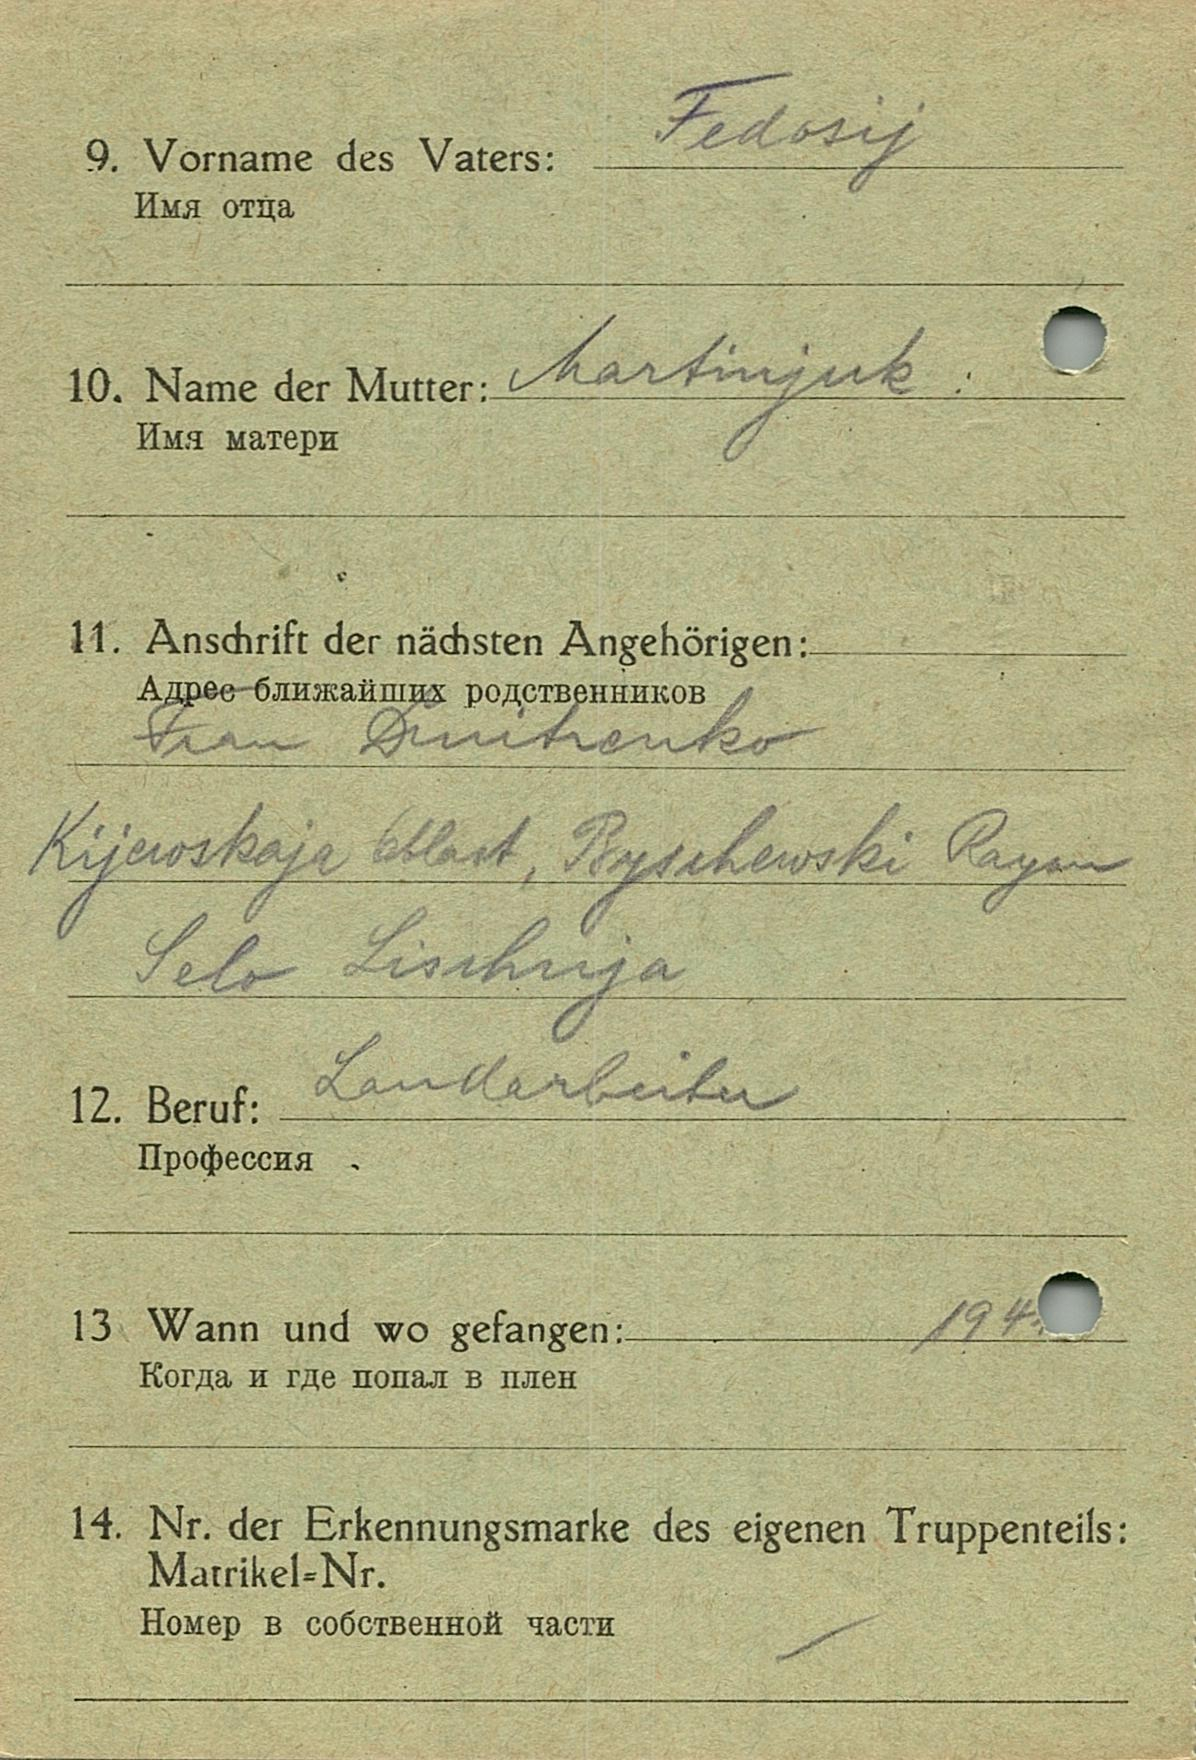 Fedosij
9. Vorname des Vaters:
Имя отца
10. Name der Mutter: Martinjuk
Имя матери
11. Anschrift der nächsten Angehörigen:
Адрес ближайших родственников
Frau Dmitrenko
Kijewskaja Oblast, Byschewski Rayon
Selo Lischnja
12. Beruf: Landarbeiter
Профессия
13 Wann und wo gefangen: 194
Когда и где попал в плен
14. Nr. der Erkennungsmarke des eigenen Truppenteils:
Matrikel=Nr.
Номер в собственной части